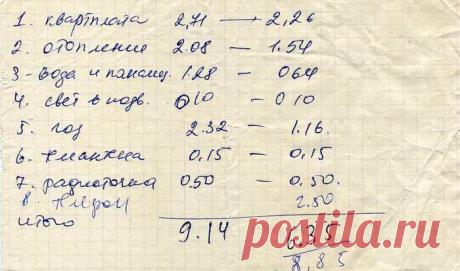 1. квартплата 2,71 — 2,26
2. отопление 2.08 — 1.54
3 - вода и канализ. 1.28 — 064
4. свет в подв. 010 — 010
5. газ 2.32 — 1.16.
6. 0,15 — 0,15
7. радиоточка 0.50 — 0.50.
8. 2.50
итого 9.14 6.35
8,85
postila.ru